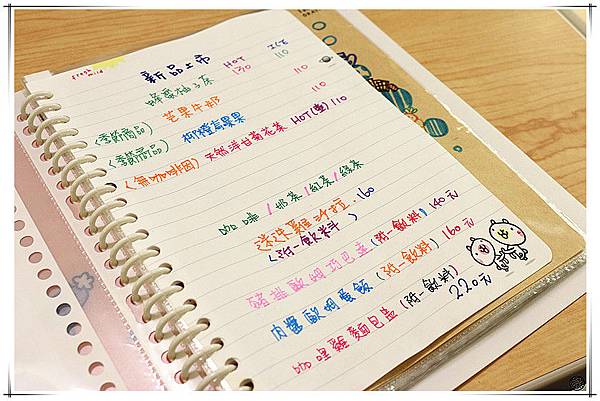 fresh
mild
新品上市 HOT ICE
蜂蜜柚子茶 130 110
芒果牛奶 110
(季節商品) 椰橙高果果 110
(季節商品)
(無咖啡因) 天然洋甘菊花茶 HOT(壺) 110
咖啡/奶茶/紅茶/綠茶
洋洋雞沙拉 160
(附一飲料)
豬排歐姆巧巴達 (附一飲料) 140元
肉醬歐姆蛋飯 (附一飲料) 160元
咖哩雞麵包盅 (附一飲料) 220元